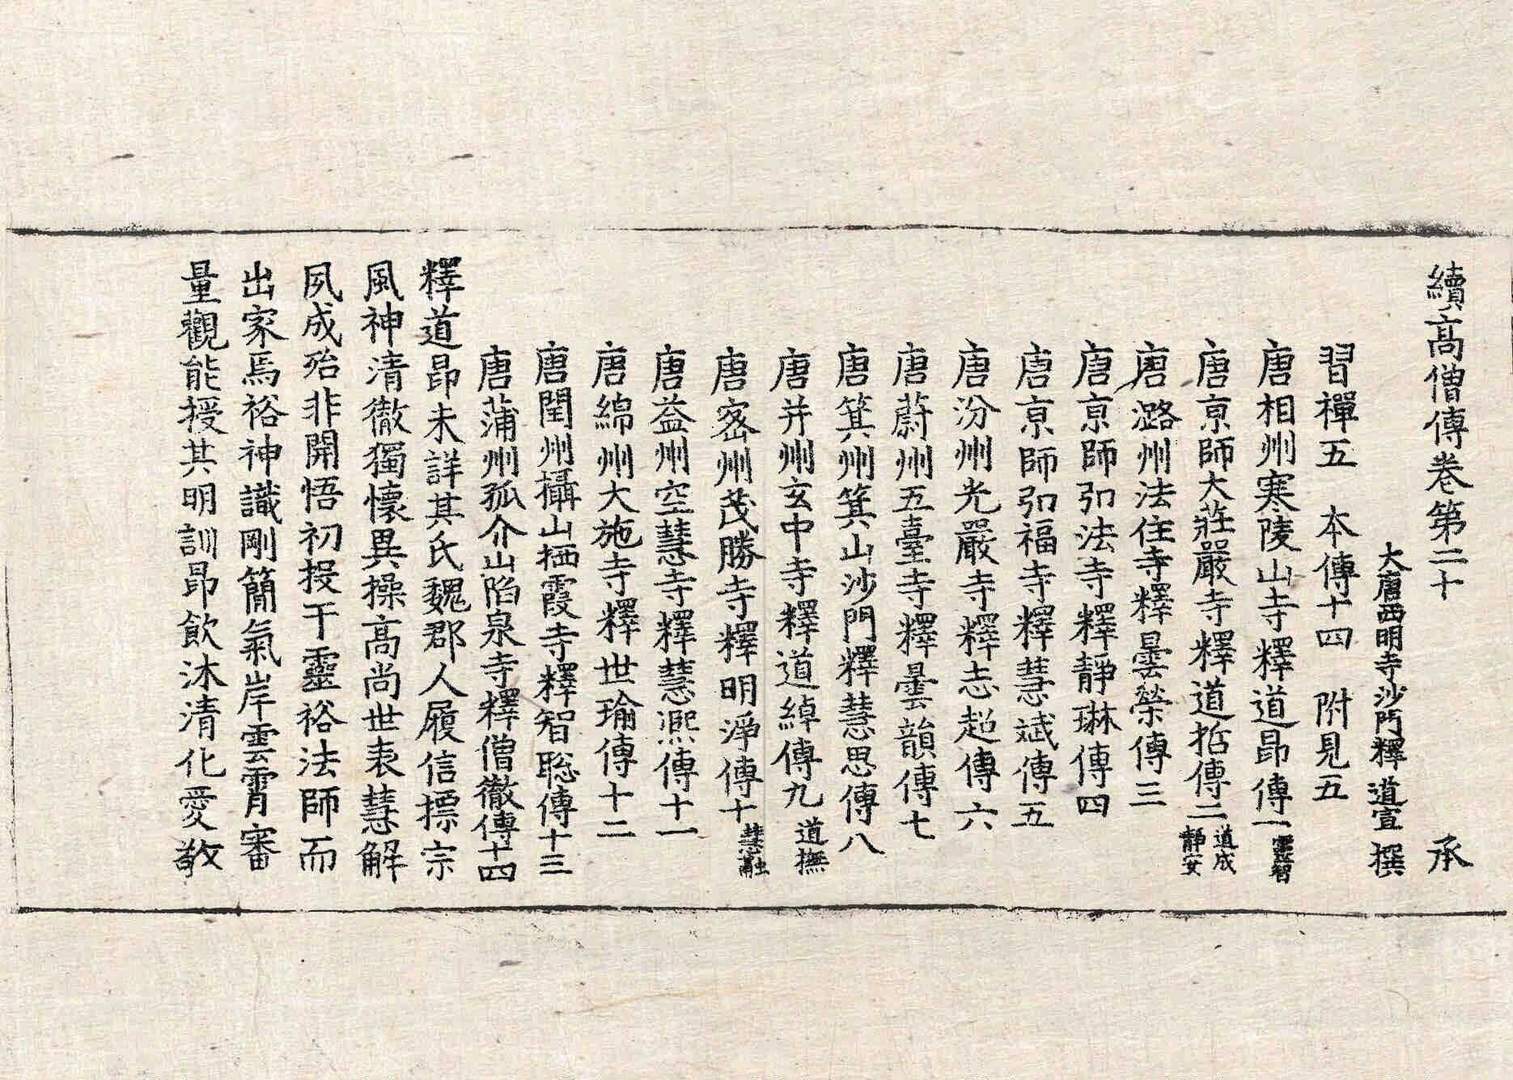 續高僧傳卷第二十 承
大唐西明寺沙門釋道宣撰
習禪五 本傳十四 附見五
唐相州寒陵山寺釋道昻傳一 靈智
唐京師大莊嚴寺釋道哲傳二 道成 靜安
唐潞州法住寺釋曇榮傳三
唐京師弘法寺釋靜琳傳四
唐京師弘福寺釋慧斌傳五
唐汾州光嚴寺釋志超傳六
唐蔚州五臺寺釋曇韻傳七
唐箕州箕山沙門釋慧思傳八
唐并州玄中寺釋道綽傳九 道撫
唐密州茂勝寺釋明淨傳十 慧融
唐益州空慧寺釋慧熙傳十一
唐綿州大施寺釋世瑜傳十二
唐閏州攝山栖霞寺釋智聡傳十三
唐蒲州孤介山陷泉寺釋僧徹傳十四
釋道昻未詳其氏魏郡人履信標宗
風神清徹獨懷異操高尚世表慧解
夙成殆非開悟初投干靈裕法師而
出家焉裕神識剛簡氣岸雲霄審
量觀能授其明訓昻飲沐清化愛敬